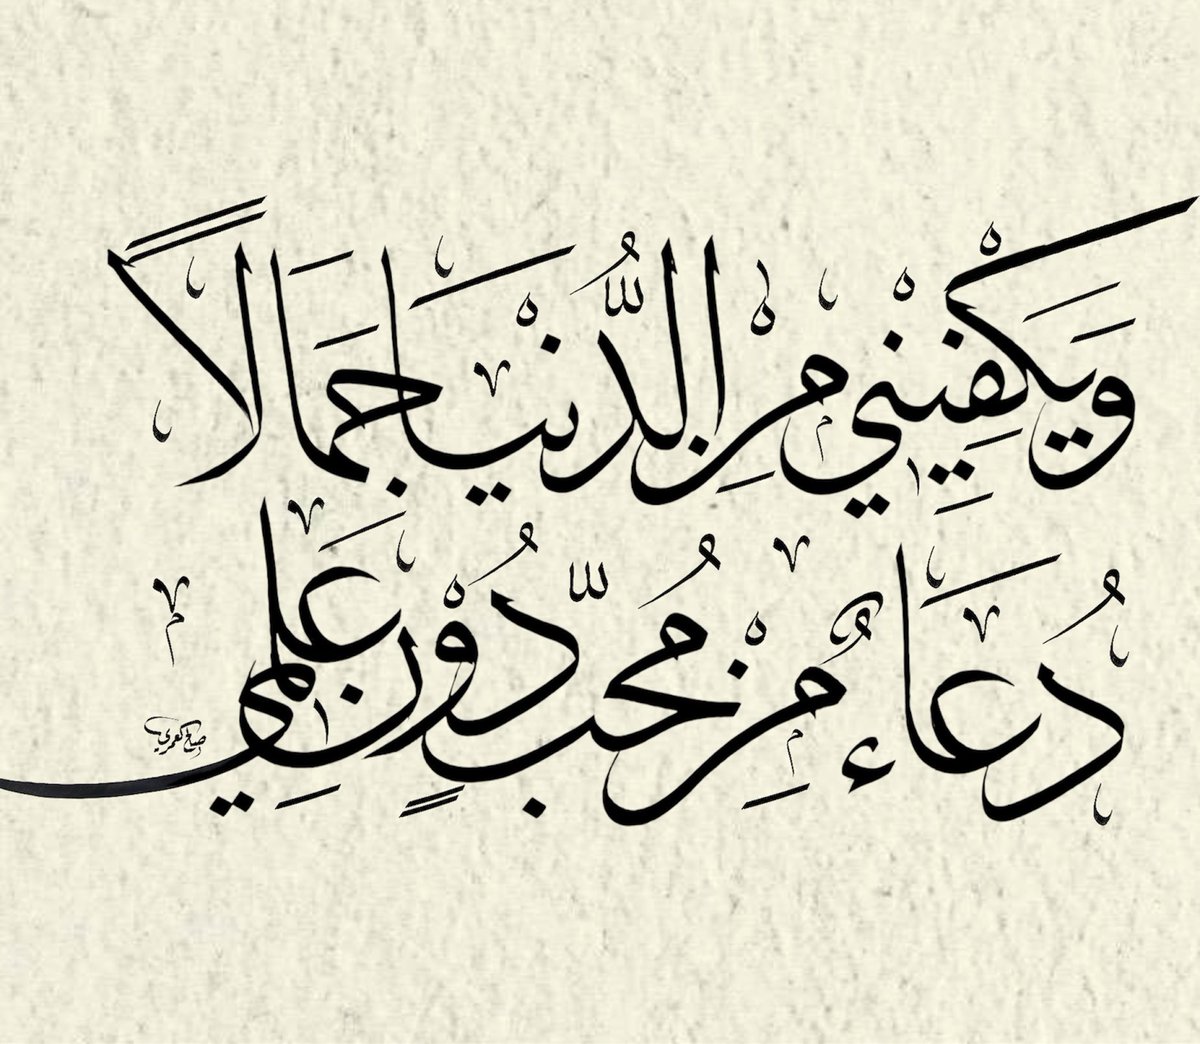 وَيَكْفِينِي مِنَ الدُّنْيَا جَمَالًا
دُعَاءٌ مِنْ مُحِبٍّ دُونَ عِلْمِي
صالح العمري